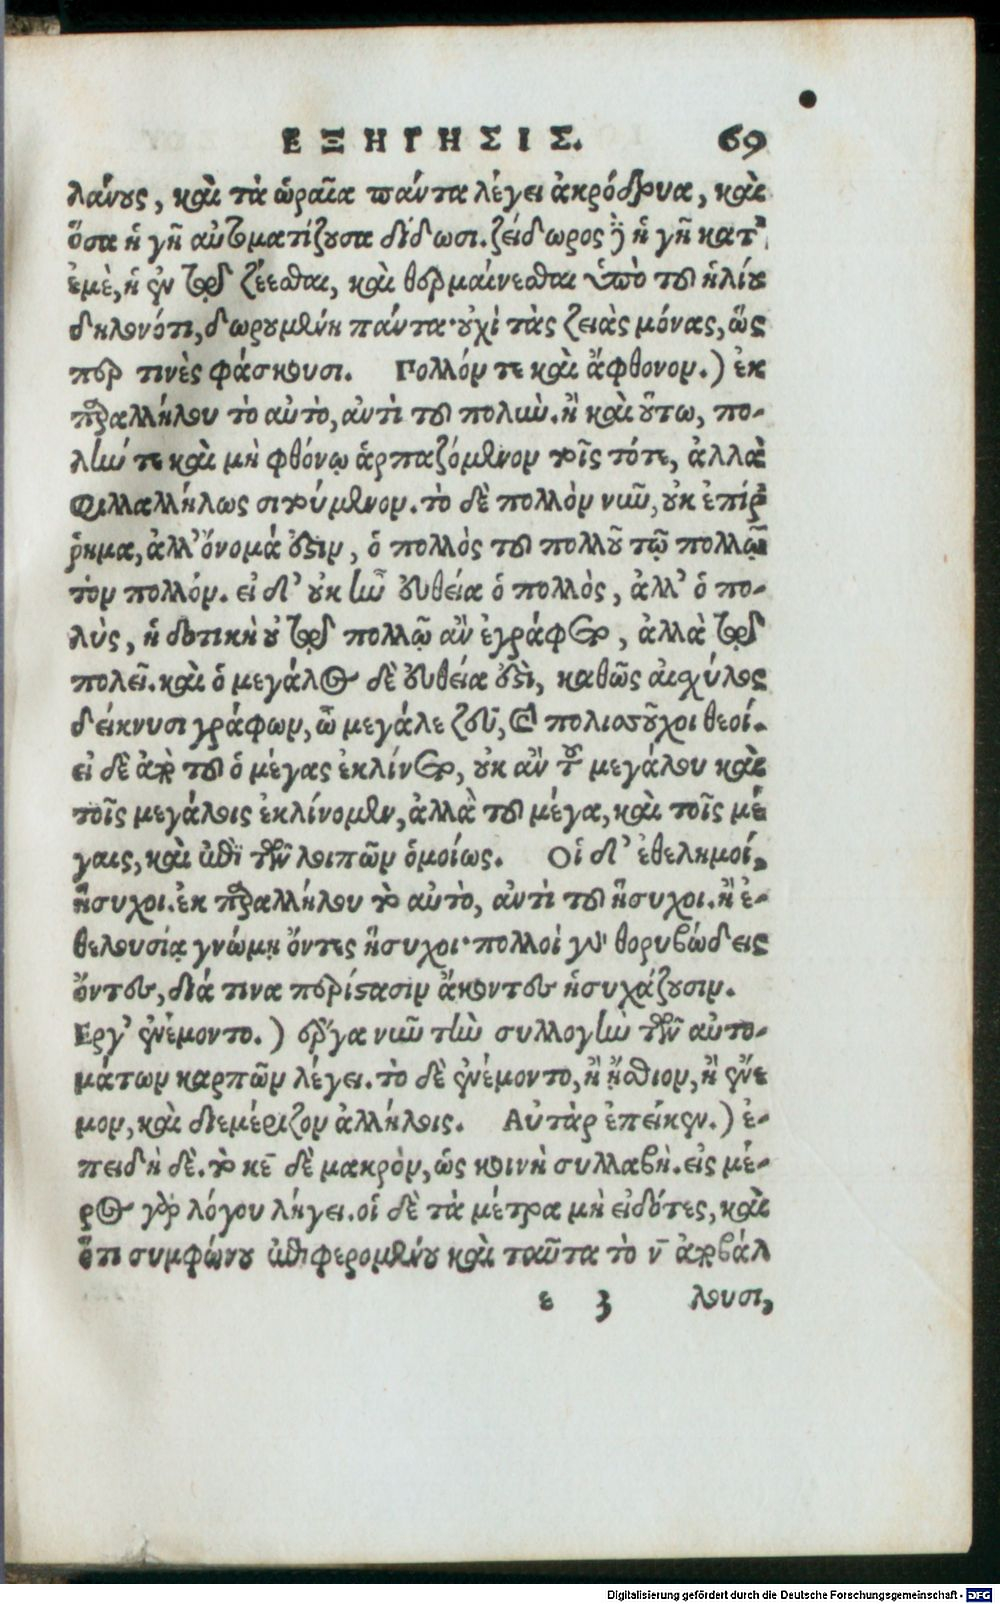 ΕΞΗΓΗΣΙΣ. 69
λάνους, καὶ τὰ ὡραῖα πάντα λέγει ἀκρόδρυα, καὶ
ὅσα ἡ γῆ αὐτοματίζουσα δίδωσι. ζείδωρος ἢ ἡ γῆ κατ'
ἐμὲ, ἡ ἐν τῷ ζέεσθαι, καὶ θερμαίνεσθαι ὑπὸ τοῦ ἡλίου
δηλονότι, δωρουμένη πάντα· οὐχὶ τὰς ζειὰς μόνας, ὥς
περ τινὲς φάσκουσι. Πολλόν τε καὶ ἄφθονον.) ἐκ
παραλλήλου τὸ αὐτὸ, ἀντὶ τοῦ πολύ. ἢ καὶ οὕτω, πο-
λύ τε καὶ μὴ φθόνῳ ἁρπαζόμενον τοῖς τότε, ἀλλὰ
φιλαλλήλως σιτούμενον. τὸ δὲ πολλὸν νῦν, οὐκ ἐπίρ
ῥημα, ἀλλ' ὄνομά ἐστιν, ὁ πολλὸς τοῦ πολλοῦ τῷ πολλῷ
τὸν πολλόν. εἰ δ' οὐκ ἦν εὐθεία ὁ πολλὸς, ἀλλ' ὁ πο-
λὺς, ἡ δοτικὴ οὐ τῷ πολλῷ ἂν ἐγράφετο, ἀλλὰ τῷ
πολεῖ. καὶ ὁ μεγάλος δὲ εὐθεία ἐστὶ, καθὼς αἰσχύλος
δείκνυσι γράφων, ὦ μεγάλε ζεῦ, καὶ πολιοσοῦχοι θεοί.
εἰ δὲ ἀπὸ τοῦ ὁ μέγας ἐκλίνετο, οὐκ ἂν τοῦ μεγάλου καὶ
τοῖς μεγάλοις ἐκλίνομεν, ἀλλὰ τοῦ μέγα, καὶ τοῖς μέ
γαις, καὶ ἐπὶ τῶν λοιπῶν ὁμοίως. Οἱ δ' ἐθελημοί,
ἥσυχοι. ἐκ παραλλήλου τὸ αὐτὸ, ἀντὶ τοῦ ἥσυχοι. ἢ ἐ-
θελουσίᾳ γνώμῃ ὄντες ἥσυχοι· πολλοὶ γὰρ θορυβώδεις
ὄντες, διά τινα περίστασιν ἄκοντες ἡσυχάζουσιν.
Εργ' ἐνέμοντο.) ἔργα νῦν τὴν συλλογὴν τῶν αὐτο-
μάτων καρπῶν λέγει. τὸ δὲ ἐνέμοντο, ἢ ἤσθιον, ἢ ἔνε
μον, καὶ διεμέριζον ἀλλήλοις. Αὐτὰρ ἐπείκεν.) ἐ-
πειδὴ δὲ. τὸ κε̄ δὲ μακρὸν, ὡς κοινὴ συλλαβὴ. εἰς μέ-
ρος γὰρ λόγου λήγει. οἱ δὲ τὰ μέτρα μὴ εἰδότες, καὶ
ὅτι συμφώνου ἐπιφερομένου καὶ ταῦτα τὸ ν̄ παρβάλ
ε 3 λουσι,
Digitalisierung gefördert durch die Deutsche Forschungsgemeinschaft - DFG